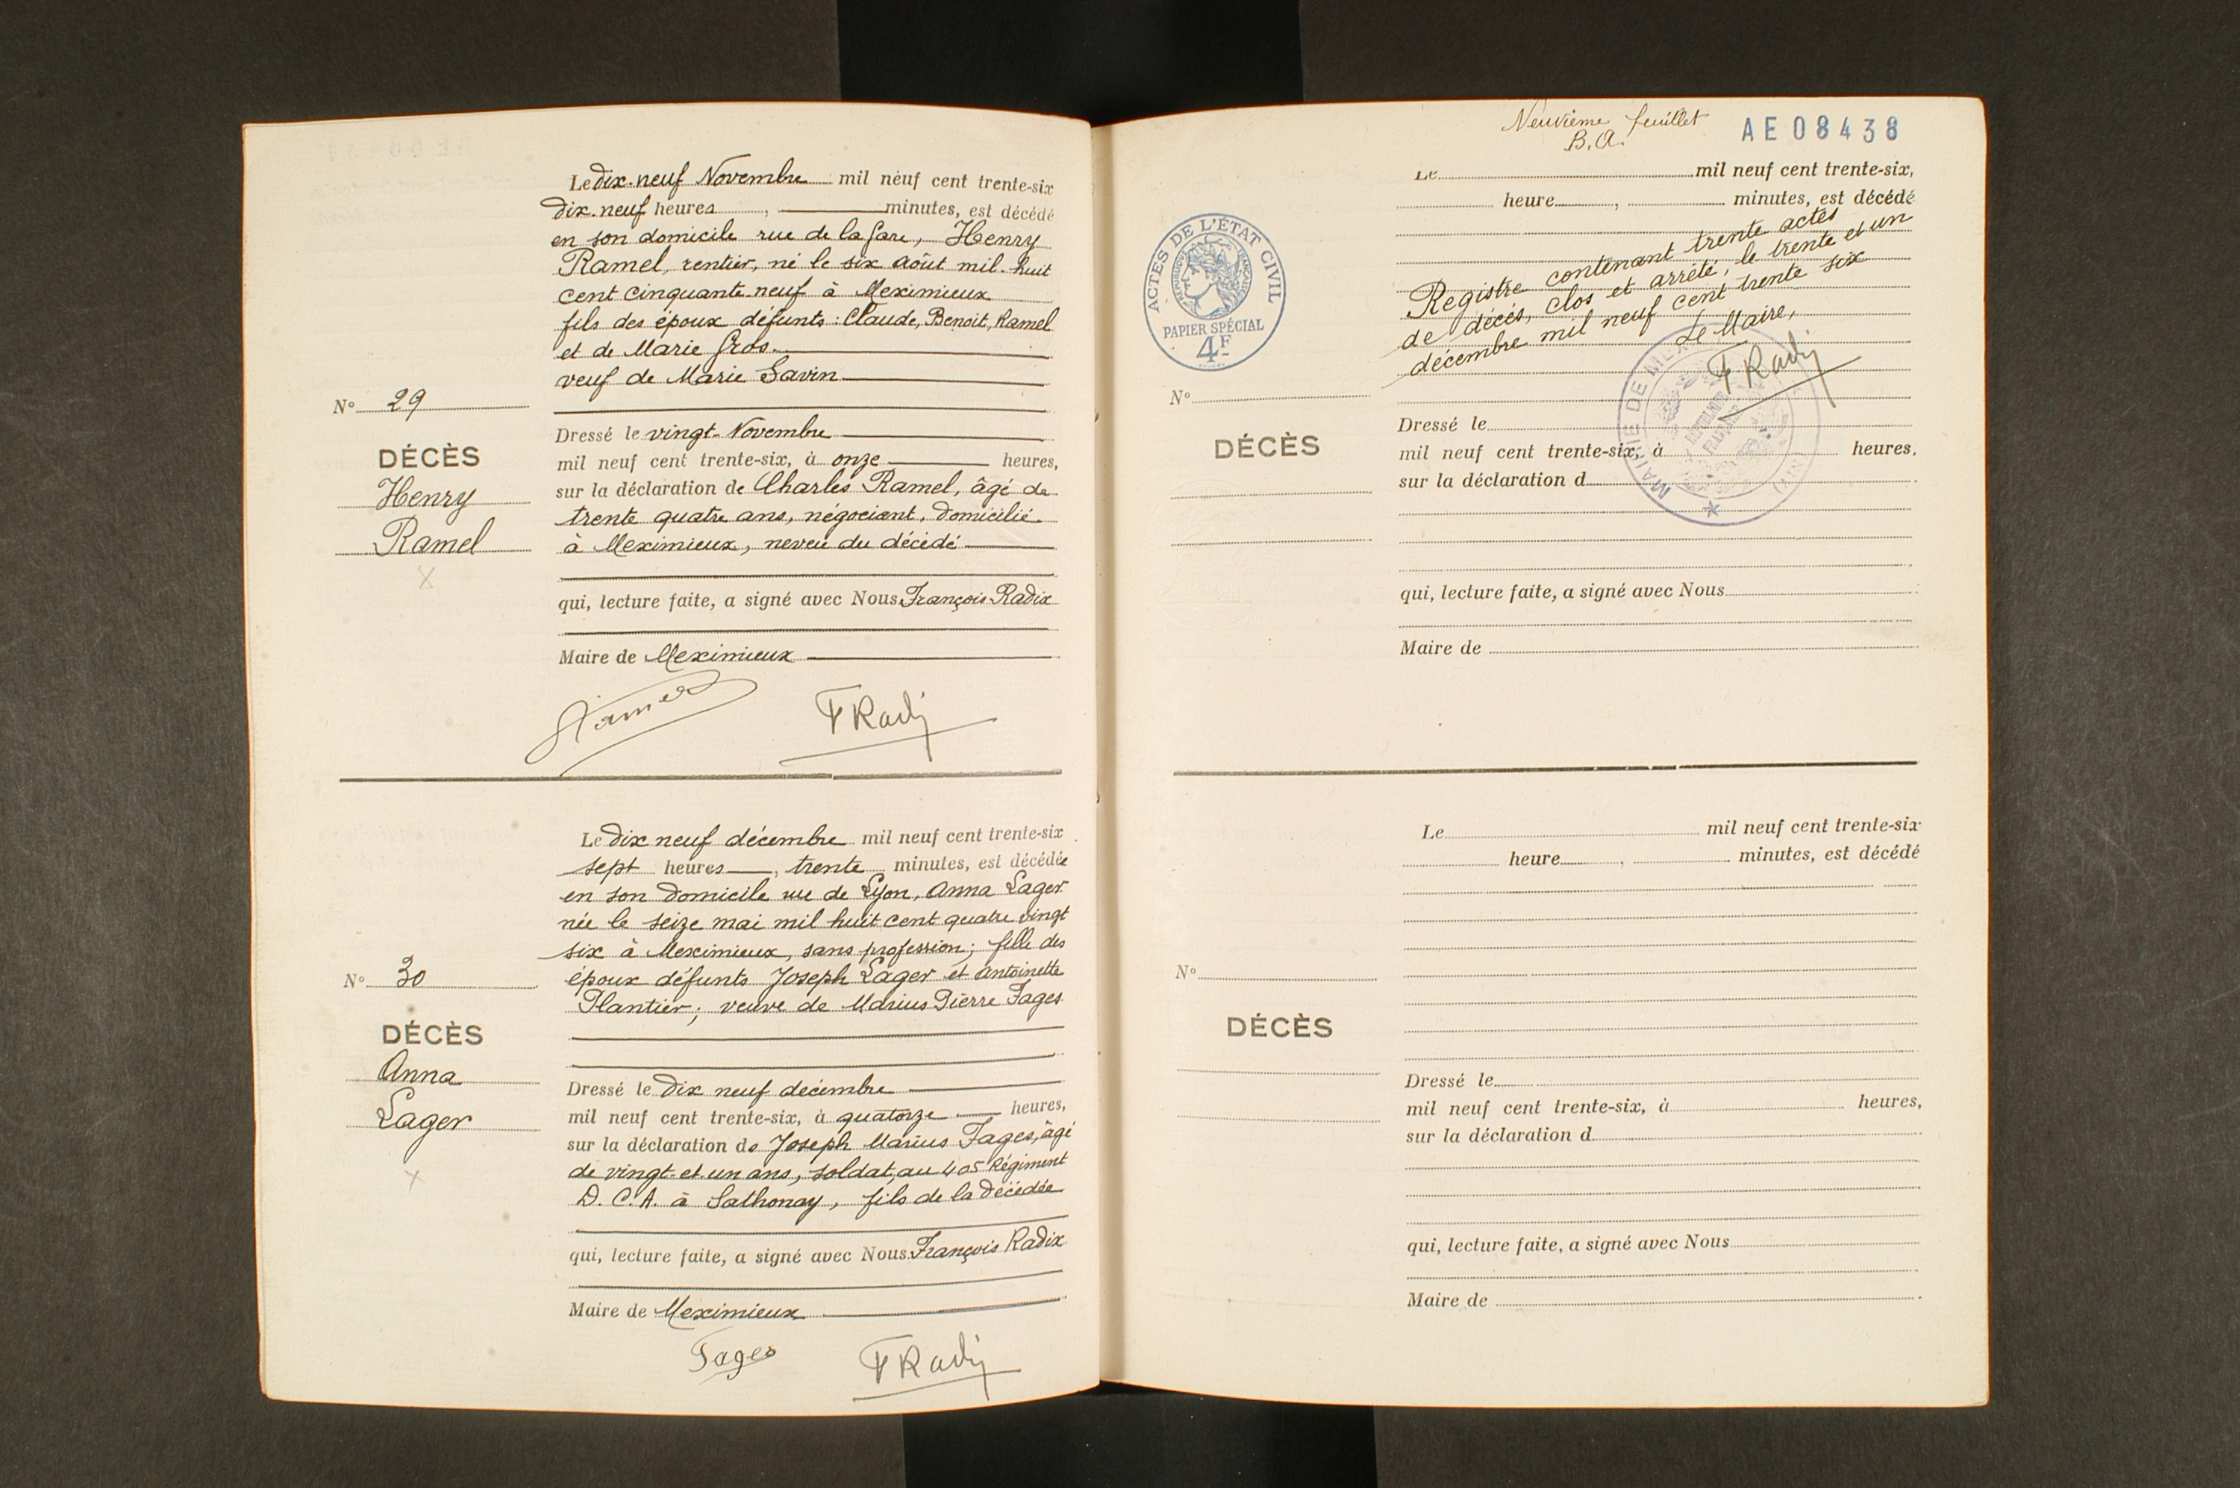 Le dix-neuf Novembre mil neuf cent trente-six
dix-neuf heures, minutes, est décédé
en son domicile rue de la Gare, Henry
Ramel, rentier, né le six août mil-huit
cent cinquante-neuf à Meximieux
fils des époux défunts : Claude, Benoit, Ramel
et de Marie Gros.
veuf de Marie Savin
N° 29
DÉCÈS
Henry
Ramel
X
Dressé le vingt-Novembre
mil neuf cent trente-six, à onze heures,
sur la déclaration de Charles Ramel, âgé de
trente quatre ans, négociant, domicilié
à Meximieux, neveu du décédé
qui, lecture faite, a signé avec Nous François Radix
Maire de Meximieux
FRadix
Le dix neuf décembre mil neuf cent trente-six
sept heures, trente minutes, est décédée
en son domicile rue de Lyon, Anna Lager
née le seize mai mil huit cent quatre vingt
six à Meximieux, sans profession ; fille des
époux défunts Joseph Lager et Antoinette
Plantier ; veuve de Marius Pierre Fages
N° 30
DÉCÈS
Anna
Lager
X
Dressé le dix neuf décembre
mil neuf cent trente-six, à quatorze heures,
sur la déclaration de Joseph Marius Fages, âgé
de vingt-et-un ans, soldat, au 405 Régiment
D.C.A. à Sathonay, fils de la décédée
qui, lecture faite, a signé avec Nous François Radix
Maire de Meximieux
Fages FRadix
Neuvième feuillet
B.A.
AE08438
Le mil neuf cent trente-six,
heure, minutes, est décédé
Registre contenant trente actes
de décès, clos et arrêté, le trente et un
décembre mil neuf cent trente six
Le Maire,
FRadix
ACTES DE L'ÉTAT CIVIL
RÉPUBLIQUE FRANÇAISE
PAPIER SPÉCIAL
4F
MAIRIE DE
(AIN)
N°
DÉCÈS
Dressé le
mil neuf cent trente-six, à heures,
sur la déclaration d
qui, lecture faite, a signé avec Nous
Maire de
Le mil neuf cent trente-six
heure, minutes, est décédé
N°
DÉCÈS
Dressé le
mil neuf cent trente-six, à heures,
sur la déclaration d
qui, lecture faite, a signé avec Nous
Maire de